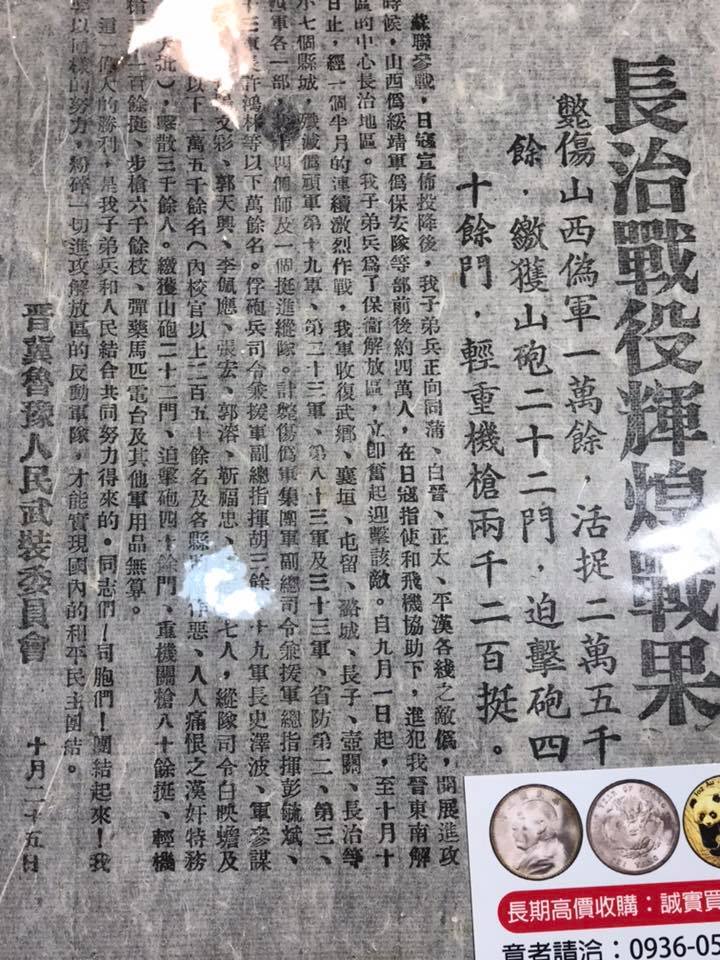 長治戰役輝煌戰果
斃傷山西偽軍一萬餘，活捉二萬五千
餘，繳獲山砲二十二門，迫擊砲四
十餘門，輕重機槍兩千二百挺。
蘇聯參戰，日寇宣佈投降後，我子弟兵正向同蒲、白晉、正太、平漢各綫之敵僞，開展進攻
時候，山西僞綏靖軍僞保安隊等部前後約四萬人，在日寇指使和飛機協助下，進犯我晉東南解
區的中心長治地區。我子弟兵爲了保衞解放區，立即奮起迎擊該敵。自九月一日起，至十月十
日止，經一個半月的連續激烈作戰，我軍收復武鄉、襄垣、屯留、潞城、長子、壺關、長治等
七個縣城，殲滅僞頑軍第十九軍、第二十三軍、第八十三軍及三十三軍、省防第二、第三、
軍各一部，十四個師及一個挺進縱隊。計斃傷僞軍集團軍副總司令兼援軍總指揮彭毓斌、
三軍長許鴻林等以下萬餘名。俘砲兵司令兼援軍副總指揮胡三餘、十九軍長史澤波、軍參謀
文彩、郭天興、李佩應、張宏、郭溶、靳福忠、七人，縱隊司令白映蟾及
以下二萬五千餘名（內校官以上二百五十餘名及各縣作惡、人人痛恨之漢奸特務
批），擊散三千餘人。繳獲山砲二十二門、迫擊砲四十餘門、重機關槍八十餘挺、輕機
一百餘挺、步槍六千餘枝、彈藥馬匹電台及其他軍用品無算。
這一偉大的勝利，是我子弟兵和人民結合共同努力得來的。同志們！同胞們！團結起來！我
要以同樣的努力，粉碎一切進攻解放區的反動軍隊，才能實現國內的和平民主團結。
晋冀魯豫人民武裝委員會 十月二十五日
長期高價收購：誠實買
意者請洽：0936-05